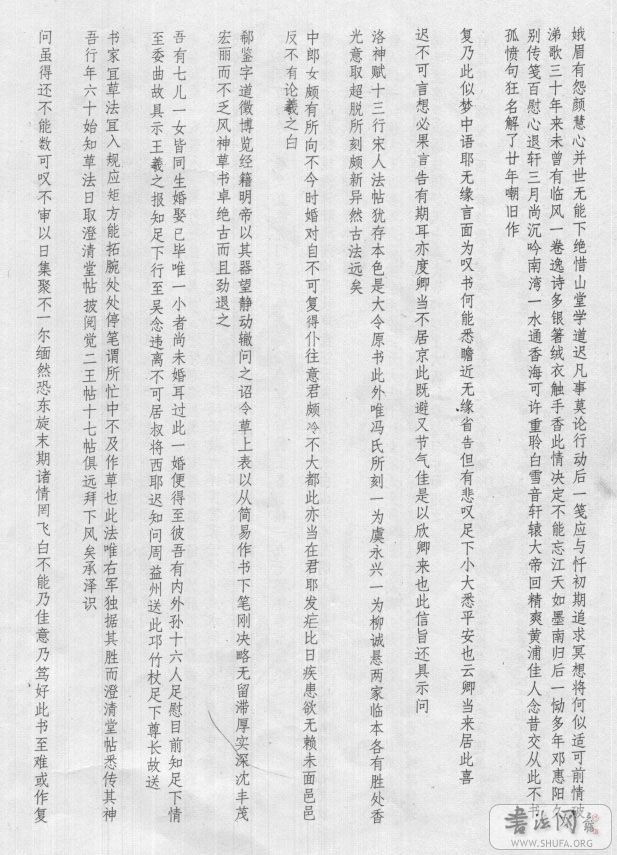 娥眉有怨颜慧心并世无能下绝惜山堂学道迟凡事莫论行动后一笺应与忏初期追求冥想将何似适可前情破
涕歌三十年来未曾有临风一卷逸诗多银箸绒衣触手香此情决定不能忘江天如墨南归后一恸多年邓惠阳久
别传笺百慰心退轩三月尚沉吟南湾一水通香海可许重聆白雪音轩辕大帝回精爽黄浦佳人念昔交从此不书
孤愤句狂名解了廿年嘲旧作
复乃此似梦中语耶无缘言面为叹书何能悉瞻近无缘省告但有悲叹足下小大悉平安也云卿当来居此喜
迟不可言想必果言告有期耳亦度卿当不居京此既避又节气佳是以欣卿来也此信旨还具示问
洛神赋十三行宋人法帖犹存本色是大令原书此外唯冯氏所刻一为虞永兴一为柳诚悬两家临本各有胜处香
光意取超脱所刻颇新异然古法远矣
中郎女颇有所向不今时婚对自不可复得仆往意君颇冷不大都此亦当在君耶发疟比日疾患欲无赖未面邑邑
反不有论羲之白
郗鉴字道徽博览经籍明帝以其器望静动辙问之诏令草上表以从简易作书下笔刚决略无留滞厚实深沈丰茂
宏丽而不乏风神草书卓绝古而且劲退之
吾有七儿一女皆同生婚娶已毕唯一小者尚未婚耳过此一婚便得至彼吾有内外孙十六人足慰目前知足下情
至委曲故具示王羲之报知足下行至吴念违离不可居叔将西耶迟知问周益州送此邛竹杖足下尊长故送
书家宜草法宜入规应矩方能拓腕处处停笔谓所忙中不及作草也此法唯右军独据其胜而澄清堂帖悉传其神
吾行年六十始知草法日取澄清堂帖披阅觉二王帖十七帖俱远拜下风矣承泽识
问虽得还不能数可叹不审以日集聚不一尔缅然恐东旋末期诸情罔飞白不能乃佳意乃笃好此书至难或作复
书法网
WWW.SHUFA.ORG